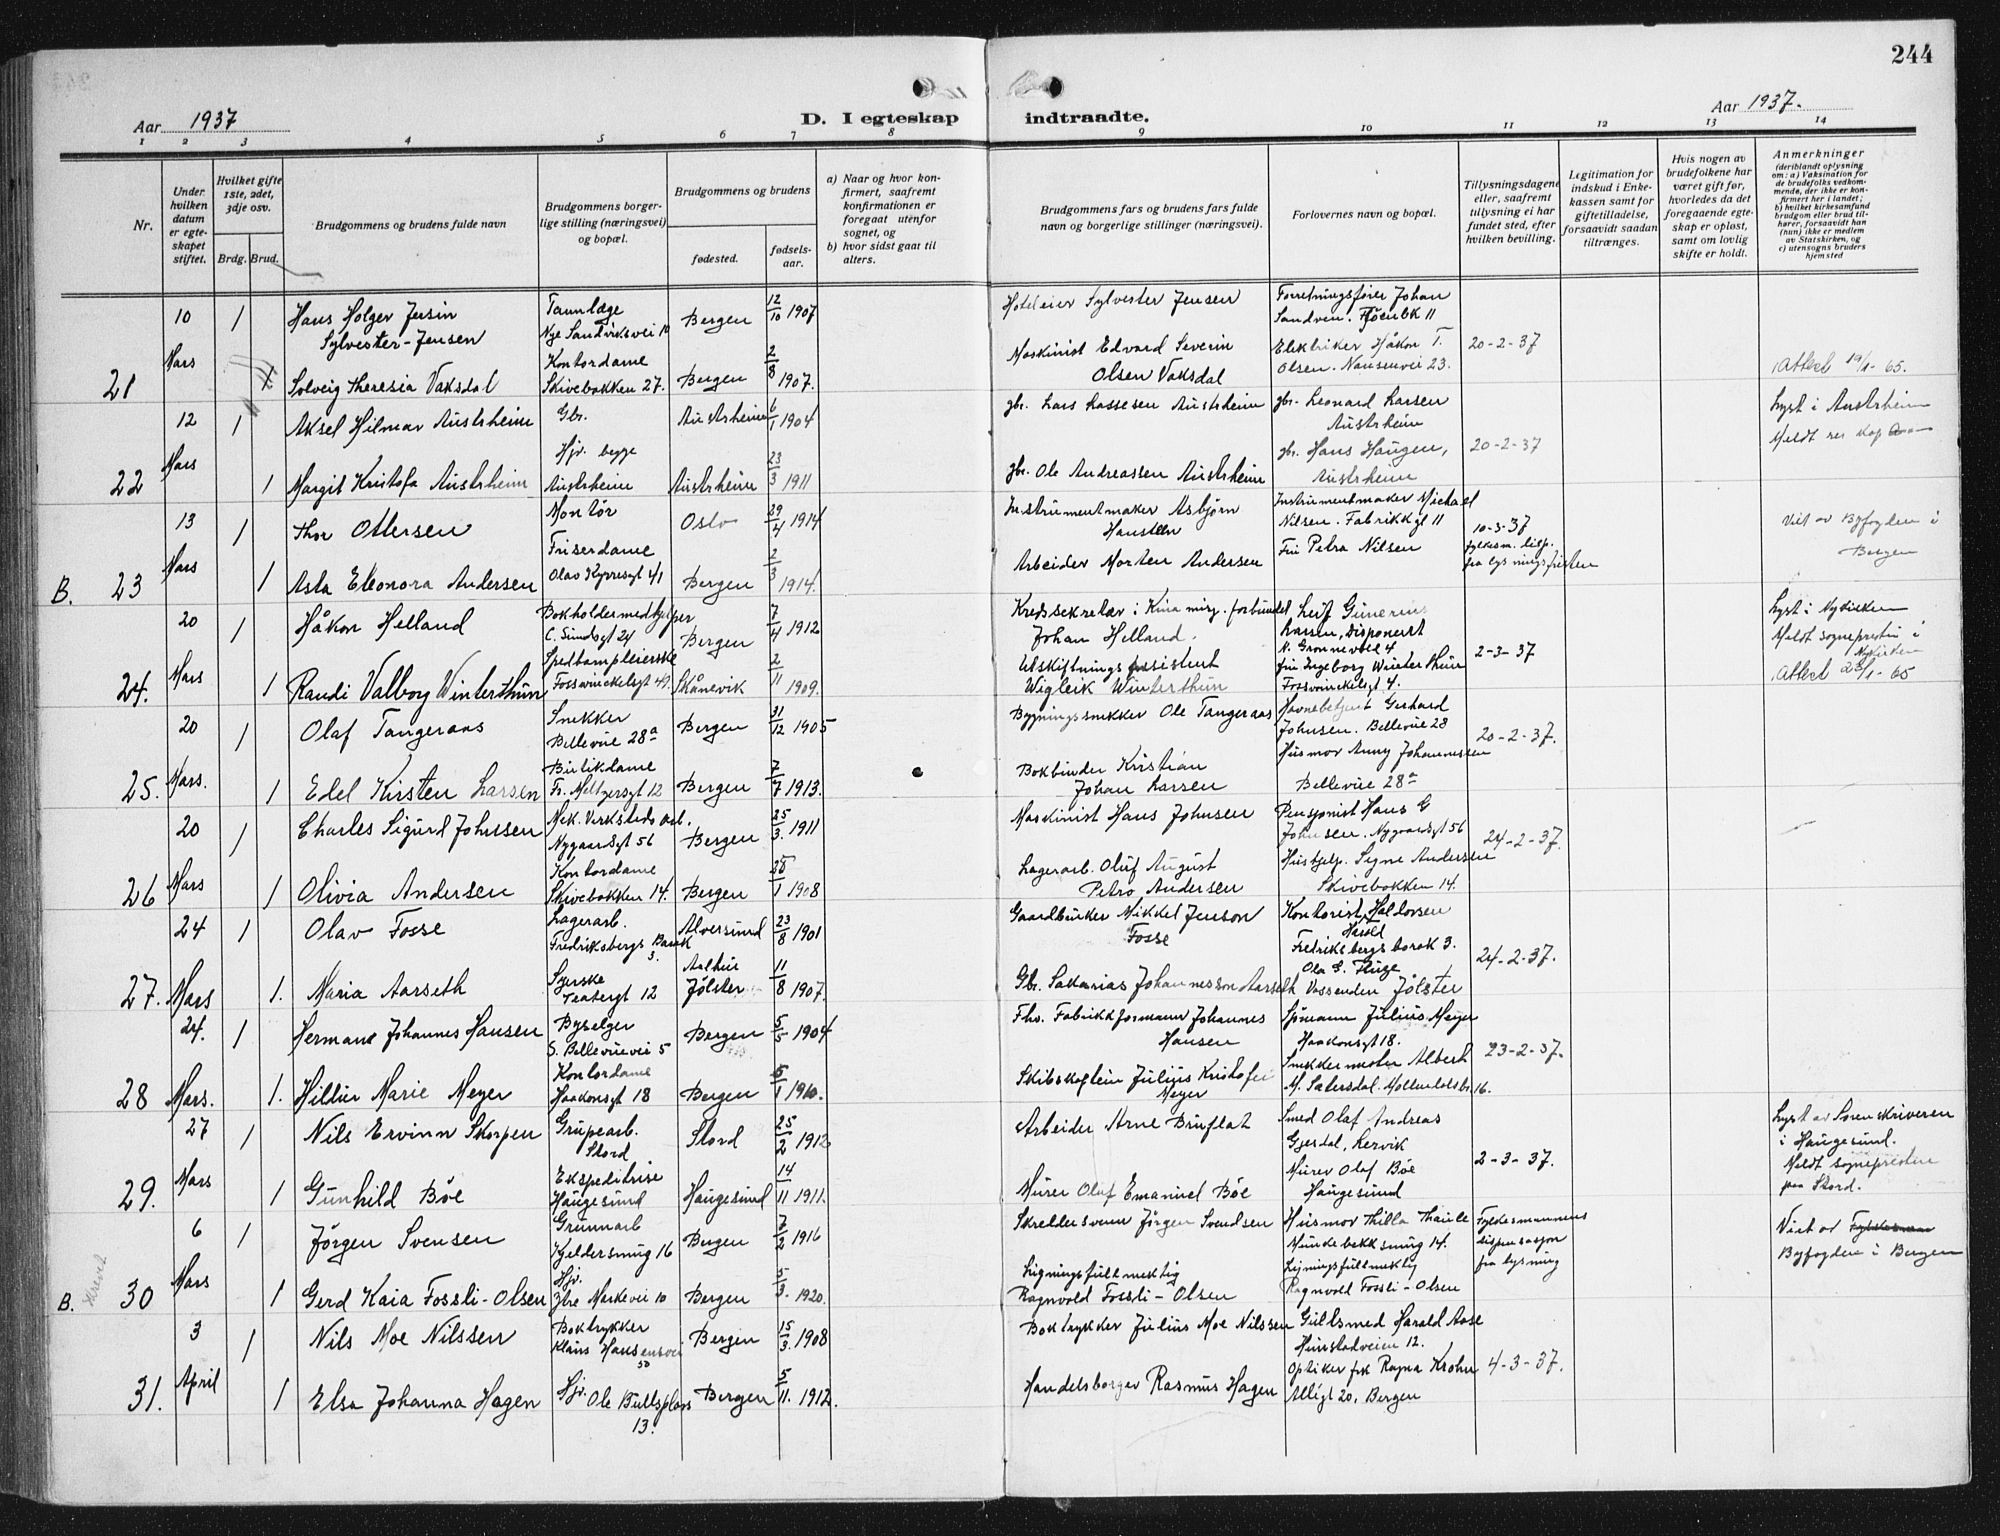 244
Aar 1937
D. I egteskap indtraadte.
Aar 1937.
1 2 3 4 5 6 7 8 9 10 11 12 13 14
Nr.
Under hvilken datum er egteskapet stiftet.
Hvilket gifte 1ste, 2det, 3dje osv.
Brdg. Brud.
Brudgommens og brudens fulde navn
Brudgommens borgerlige stilling (næringsvei) og bopæl.
Brudgommens og brudens
fødested.
fødselsaar.
a) Naar og hvor konfirmert, saafremt konfirmationen er foregaat utenfor sognet, og
b) hvor sidst gaat til alters.
Brudgommens fars og brudens fars fulde navn og borgerlige stillinger (næringsvei).
Forlovernes navn og bopæl.
Tillysningsdagene eller, saafremt tillysning ei har fundet sted, efter hvilken bevilling.
Legitimation for indskud i Enkekassen samt for giftetilladelse, forsaavidt saadan tiltrænges.
Hvis nogen av brudefolkene har været gift før, hvorledes da det foregaaende egteskap er opløst, samt om lovlig skifte er holdt.
Anmerkninger
(deriblandt oplysning om: a) Vaksination for de brudefolks vedkommende, der ikke er konfirmert her i landet;
b) hvilket kirkesamfund brudgom eller brud tilhører, forsaavidt han (hun) ikke er medlem av Statskirken, og
c) utensogns bruders hjemsted
21 10 Mars 1
Hans Holger Jersin
Sylvester-Jensen
Tannlæge
Nye Sandviksvei 10
Bergen 12/10 1907
Hoteleier Sylvester Jensen
Forretningsfører Johan
Sandven.
20-2-37
Solveig Theresia Vaksdal
Kontordame
Skivebakken 27.
Bergen 2/8 1907.
Maskinist Edvard Severin
Olsen Vaksdal
Elektriker Håkon T.
Olsen. Nansenvei 23.
Attest 19/1-65.
22 12 Mars 1
Aksel Hilmar Austrheim
Gbr.
Austrheim 6/1 1904
gbr. Lars Lassesen Austrheim
gbr. Leonard Larsen
Austrheim
20-2-37
Lyst i Austrheim
1 Margit Kristofa Austrheim
Hjv. begge
Austrheim
Austrheim 23/3 1911
gbr. Ole Andreassen Austrheim
gbr. Hans Haugen,
Austrheim
B. 23 13 Mars 1
Thor Ottersen
Montør
Oslo 29/4 1914
Instrumentmaker Asbjørn
Hansteen
Instrumentmaker Michael
Nilsen. Fabrikkgt 11
10-3-37
fylkesm. disp.
fra lysningsfristen
Viet av Byfogden i
Bergen
1 Asta Eleonora Andersen
Friserdame
Olav Kyrresgt 41
Bergen 2/3 1914.
Arbeider Morten Andersen
Fru Petra Nilsen
24. 20 Mars 1
Håkon Helland
Bokholdermedhjelper
C. Sundsgt 24
Bergen 7/4 1912
Kredssekretær i Kina misj. forbundet
Johan Helland.
Leif Gunerius
Larsen, Disponent
2-3-37
1 Randi Valborg Winterthun
Fossvinckelsgt 49.
Skånevik 2/11 1909.
Utskiftningsassistent
Wigleik Winterthun
fru Ingeborg Winterthun
Fossvinckelsgt 4.
Attest 23/1-65
25. 20 Mars. 1
Olaf Tangeraas
Snekker
Bellevue 28a
Bergen 31/12 1905
Bygningssnekker Ole Tangeraas
Havnebetjent Gerhard
Johnsen. Bellevue 28
20-2-37.
1 Edel Kirsten Larsen
Butikdame
Fr. Meltzersgt 12
Bergen 7/7 1913.
Bokbinder Kristian
Johan Larsen
Husmor Anny Johannessen
Bellevue 28a
26 20 Mars 1
Charles Sigurd Johnsen
Mek. Verksteds arb.
Nygaardsgt 56
Bergen 25/3. 1911
Maskinist Hans Johnsen
Pensjonist Hans G
Johnsen. Nygaardsgt 56
24-2-37.
1 Olivia Andersen
Kontordame
Skivebakken 14.
Bergen 1908
Lagerarb. Oluf August
Petro Andersen
Hushjelp. Signe Andersen
Skivebakken 14.
27. 24 Mars 1
Olav Fosse
Lagerarb.
Fredriksbergs Barak
3.
Alversund 23/8 1901
Gaardbruker Mikkel Jenson
Fosse
Kontorist Haldorsen
Harald
Fredriksbergs barak 3.
24-2-37.
1. Maria Aarseth
Syerske
Teatergt 12
Aalhus
Jølster 11/8 1907.
Gbr. Sakarias Johannesson Aarseth
Vassenden Jølster
28 24. Mars. 1
Hermann Johannes Hansen
Byselger
S. Bellevuevei 5
Bergen 5/5 1904
Fhv. Fabrikkformann Johannes
Hansen
Sjømann Julius Meyer
Haakonsgt 18.
23-2-37.
1. Hillur Marie Meyer
Kontordame
Haakonsgt 18
Bergen 5/1 1910.
Skibskaptein Julius Kristofer
Meyer
Snekkermester Albert
M. Sætersdal.
29. 27 Mars 1
Nils Ervinn Skorpen
Grupearb.
Stord
Stord 25/2 1912
Arbeider Arne Bruflat
Smed Olaf Andreas
Gjerdal, Lervik
2-3-37.
Lyst av Sorenskriveren
i Haugesund.
Meldt sognepresten
paa Stord.
1 Gunhild Bøe
Ekspeditrise
Haugesund
Haugesund 14/11 1911.
Murer Olaf Emanuel Bøe
Murer Olaf Bøe
Haugesund
B. 30 6 Mars 1
Jørgen Svensen
Grunnarb
Kjeldersmug 16
Bergen 7/2 1916
Skreddersvenn Jørgen Svendsen
Husmor Thilla Thaule
Mundebekksmug 14.
Fylkesmannens
dispensasjon
fra lysning
Viet av
Byfogden i Bergen
1 Gerd Kaia Fossli-Olsen
Hjv.
Ytre Markevei 10
Bergen 5/3. 1920.
Ligningsfullmektig
Ragnvald Fossli-Olsen
Ligningsfullmektig
Ragnvald Fossli-Olsen
31. 3 April 1
Nils Moe Nilssen
Boktrykker
Klaus Hansensvei
50
Bergen 15/3. 1908
Boktrykker Julius Moe Nilssen
Gullsmed Harald Aase
Hunstadveien 12.
4-3-37.
1 Elsa Johanna Hagen
Hjv.
Ole Bullsplass
13.
Bergen 5/11. 1912.
Handelsborger Rasmus Hagen
Optiker frk Ragna Krohn
Allégt 20, Bergen